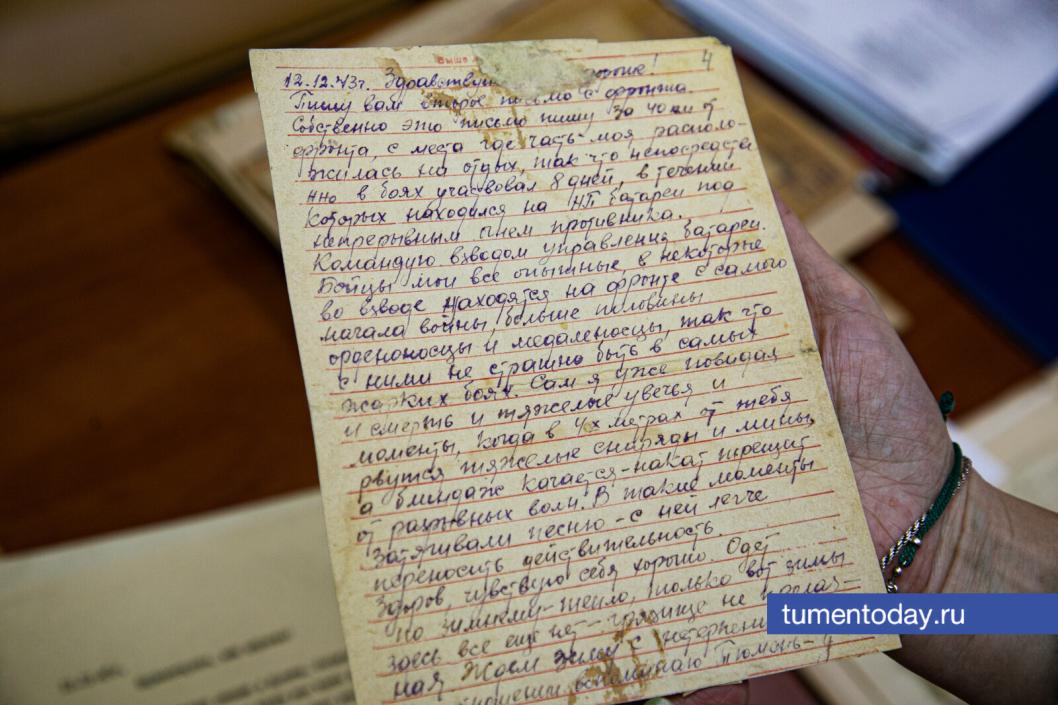 Выше
4
12.12.43г. Здравствуй рогие!
Пишу вам второе письмо с фронта.
Собственно это письмо пишу за 40 км от
фронта, с места где часть моя располо-
жилась на отдых, так что непосредств
нно в боях участвовал 8 дней, в течении
которых находился на НП батареи под
непрерывным огнем противника.
Командую взводом управления батареи.
Бойцы мои все опытные, и некоторые
во взводе находятся на фронте с самого
начала войны, больше половины
орденоносцы и медаленосцы, так что
с ними не страшно быть в самых
жарких боях. Сам я уже повидал
и смерть и тяжелые увечья и
моменты, когда в 4х метрах от тебя
рвутся тяжелые снаряды и мины,
а блиндаж качается - накат трещит
от разрывных волн. В такие моменты
затягивали песню - с ней легче
переносить действительность.
Здоров, чувствую себя хорошо. Одет
по зимнему - тепло, только вот зимы
здесь все еще нет - грязище не
ная. Ждем зимы с нетерпени
вспоминаю Тюмень - у
tumentoday.ru